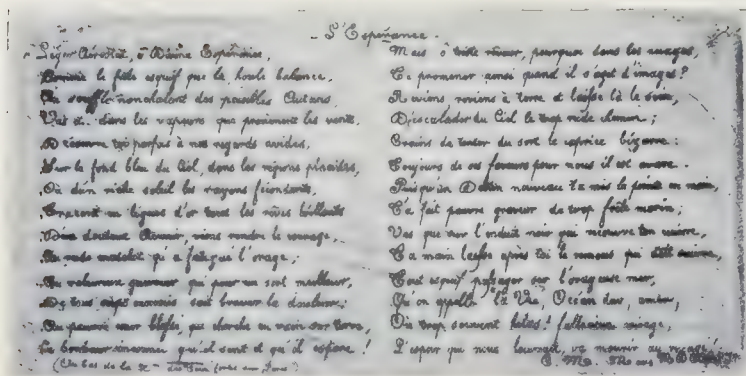 L'Espérance.
Léger Aérostat, ô Divine Espérance,
Comme le frêle esquif que la houle balance,
Au souffle nonchalant des paisibles Autans,
Vas et dans les vapeurs que promènent les vents,
Dessine toi parfois à nos regards avides,
Sur le fond bleu du Ciel, dans les régions placides,
Où d'un riche soleil les rayons
Tracent en lignes d'or tous les rêves brillants
douteux Avenir, viens rendre le courage,
Au rude matelot qu'a fatigué l'orage;
Au valeureux guerrier qui pour un sort meilleur,
De tous sait braver la douleur;
Au pauvre cœur blessé, qui cherche en vain sur terre,
Le bonheur inconnu qu'il sent et qu'il espère!
(Au bas de la
Mais ô triste rêveur, pourquoi dans les nuages,
Te promener ainsi quand il s'agit d'images?
Reviens, reviens à terre et laisse là le soin,
D'escalader du Ciel le trop rude chemin;
Crains de tenter du sort le caprice bizarre:
Toujours de ses faveurs pour nous il est avare.
Puisqu'un Destin nouveau t'a mis la pointe en main,
T'a fait pauvre graveur de trop frêle marin;
Vas que sur l'enduit noir qui recouvre ton cuivre,
Ta main laisse après toi le remous qui doit suivre,
Tout esquif passager sur l'orageuse mer,
Qu'on appelle la Vie, Océan dur, amer,
Où trop souvent hélas! mirage,
L'espoir qui nous leurrait, va mourir au rivage!